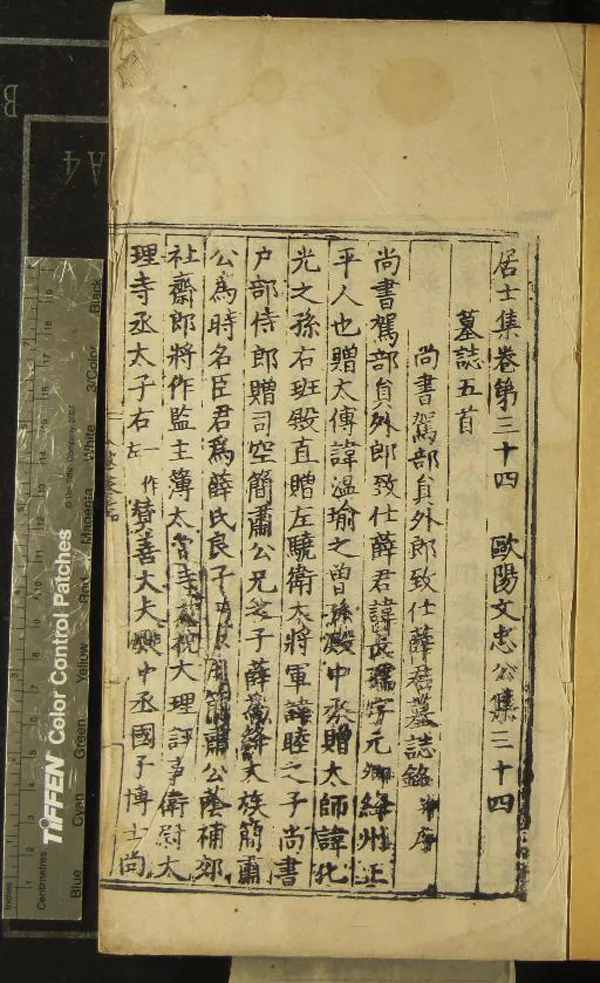 居士集卷第三十四　歐陽文忠公集三十四
墓誌五首
尚書駕部員外郎致仕薛君墓誌銘 并序
尚書駕部員外郎致仕薛君諱長孺字元卿絳州正
平人也贈太傅諱温瑜之曾孫殿中丞贈太師諱化
光之孫右班殿直贈左驍衛大將軍諱睦之子尚書
户部侍郎贈司空簡肅公兄之子薛爲絳大族簡肅
公爲時名臣君爲薛氏良子用簡肅公蔭補郊
社齋郎將作監主簿太常寺太祝大理評事衛尉太
理寺丞太子右 一作左 贊善大夫殿中丞國子博士尚
TIFFEN Color Control Patches
© The Tiffen Company, 2007
Inches
Centimetres
Blue Cyan Green Yellow Red Magenta White 3/Color Black
A4
B